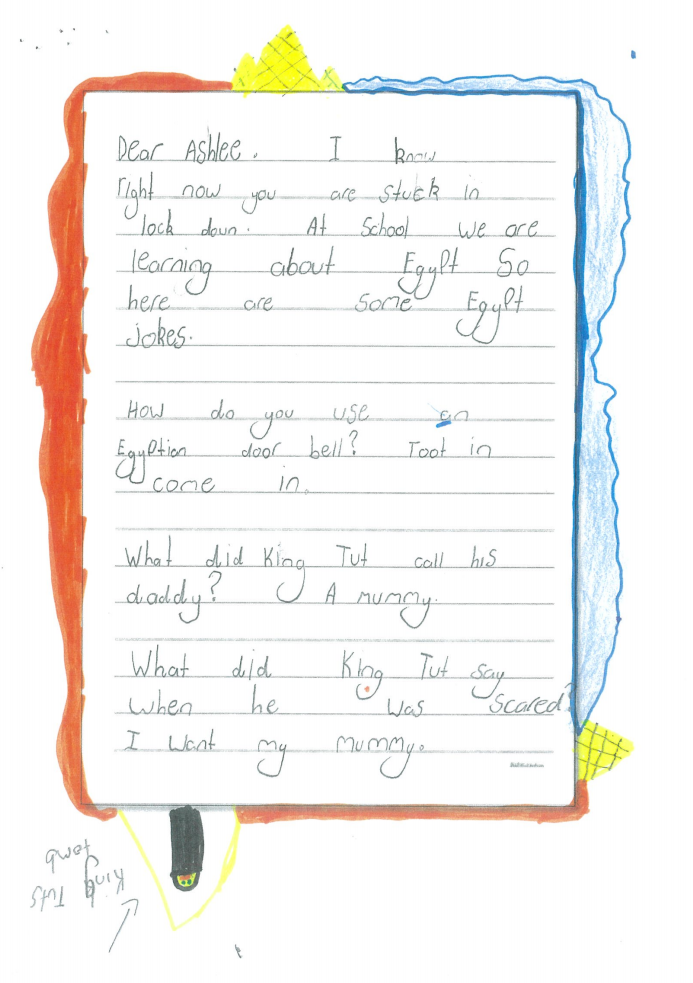 Dear Ashlee. I know
right now you are stuck in
lock down. At School we are
learning about Egypt So
here are some Egypt
jokes.
How do you use an
Egyptian door bell? Toot in
come in.
What did King Tut call his
daddy? A mummy.
What did King Tut say
when he was scared?
I want my mummy.
King Tuts
tomb